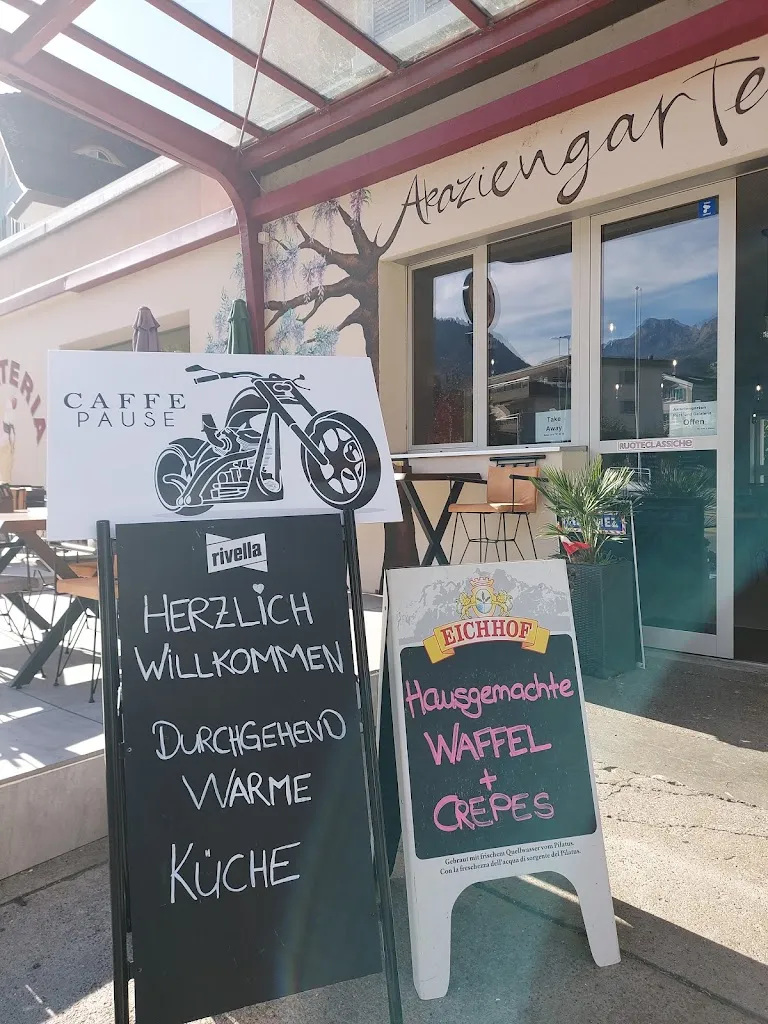 Akaziengarte
TERIA
CAFFE
PAUSE
Take
Away
Offen
RUOTECLASSICHE
rivella
HERZLICH
WILLKOMMEN
DURCHGEHEND
WARME
KÜCHE
EICHHOF
Hausgemachte
WAFFEL
+
CRÊPES
Gebraut mit frischem Quellwasser vom Pilatus.
Con la freschezza dell'acqua di sorgente del Pilatus.